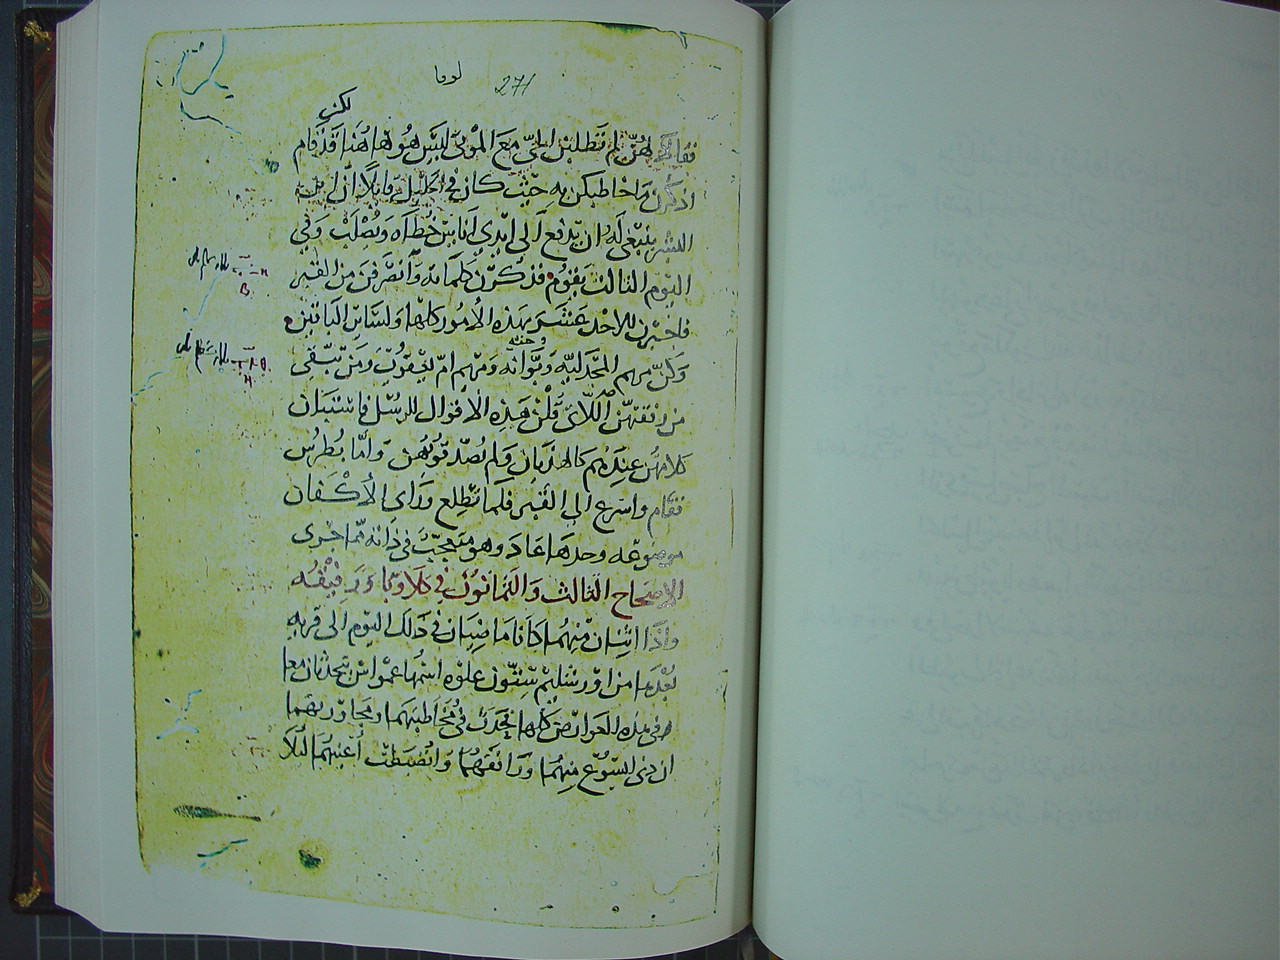 لوقا 271
لكن
فقالا لهن لم تطلبن الحي مع الموتى ليس هو هاهنا قد قام
اذكرن ما خاطبكن به حيث كان في الجليل قايلا ان ابن
البشر ينبغي له ان يدفع الى ايدي اناس خطاه ويصلب وفي
اليوم الثالث يقوم فذكرن كلماته وانصرفن من القبر
فاخبرن للاحد عشر بهذه الامور كلها ولساير الباقين
وحنه
وكن مريم المجدليه ويوانه ومريم ام يعقوب ومن تبقى
من رفقتهن اللاي قلن هذه الاقوال للرسل فاستبان
كلامهن عندهم كالهذيان ولم يصدقوهن واما بطرس
فقام واسرع الى القبر فلما تطلع وراى الاكفان
موضوعه وحدها عاد وهو متعجب في ذاته مما جرى
الاصحاح الثالث والثمانون في كلاوبا ورفيقه
واذا اثنان منهما كانا ماضيان في ذلك اليوم الى قريه
بعدها من اورشليم ستون غلوه اسمها عمواس يتحدثان معا
في هذه العوارض كلها فحدث في مخاطبتهما ومجاورتهما
ان دنى ايسوع منهما ورافقهما وانضبطت اعينهما ليلا